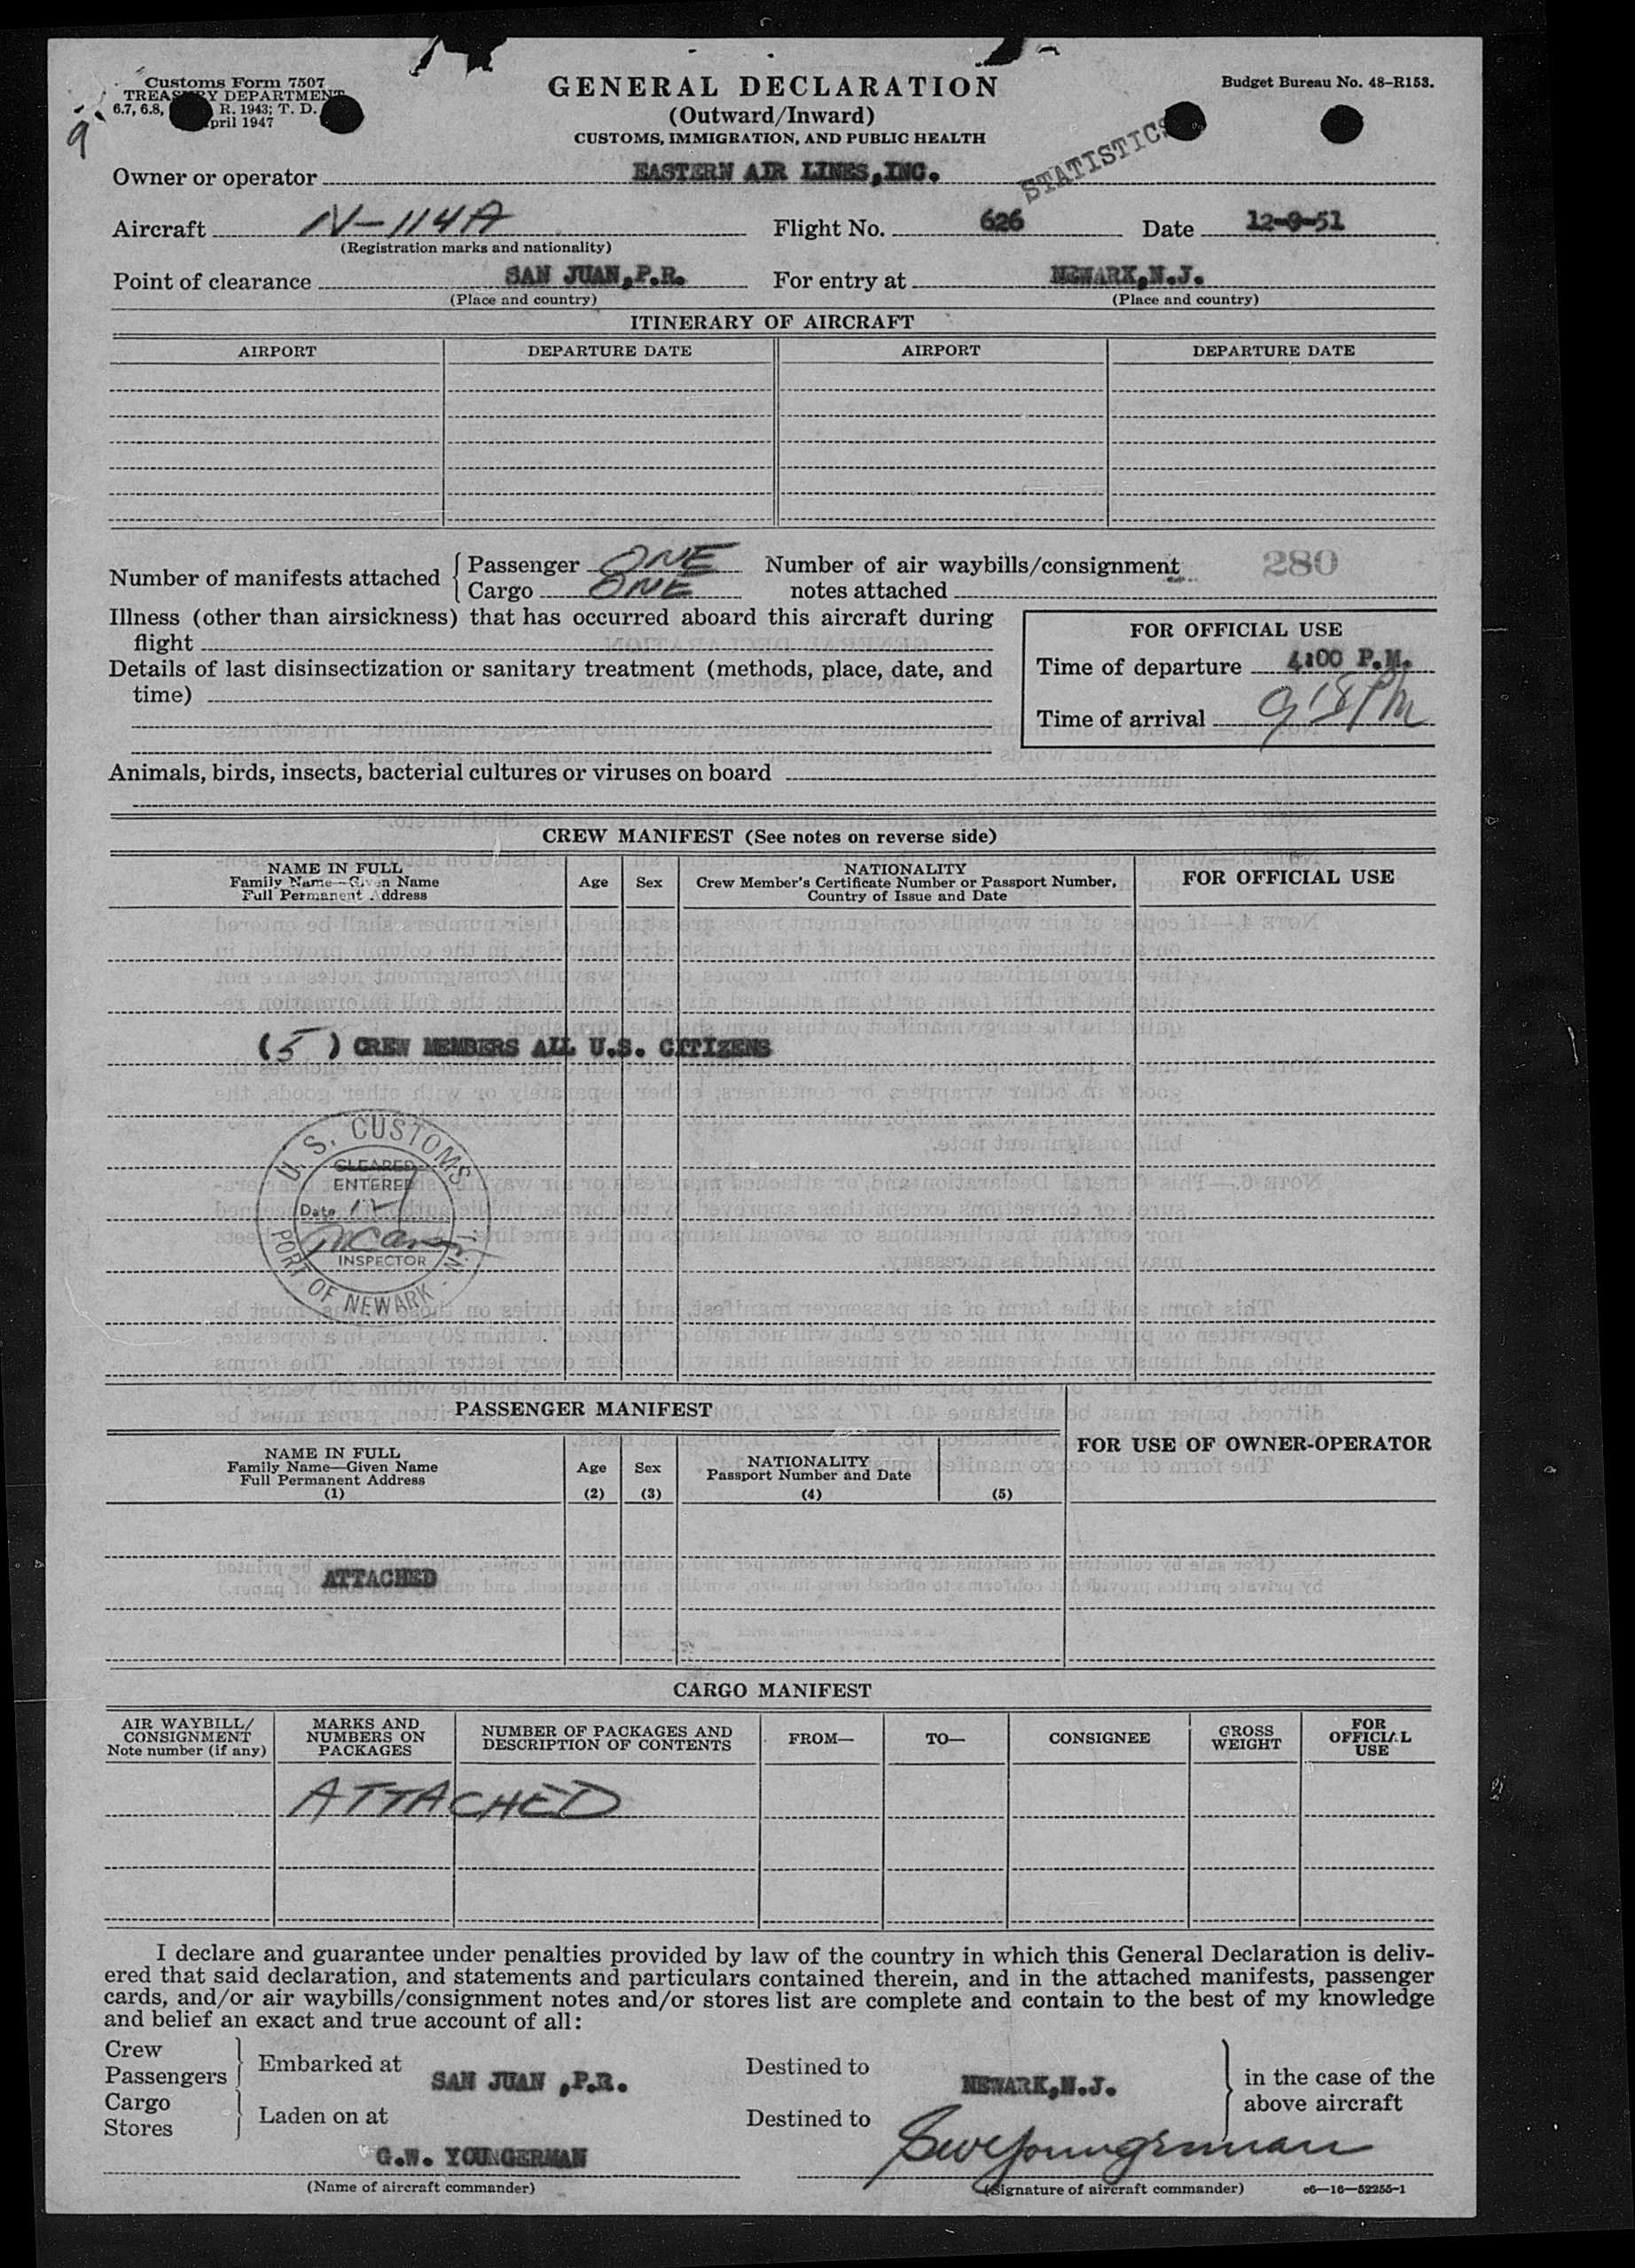 Customs Form 7507
TREASURY DEPARTMENT
6.7, 6.8, R. 1943; T. D.
April 1947
9
GENERAL DECLARATION
(Outward/Inward)
CUSTOMS, IMMIGRATION, AND PUBLIC HEALTH
Budget Bureau No. 48—R153.
STATISTICS
Owner or operator EASTERN AIR LINES,INC.
Aircraft N-114A Flight No. 626 Date 12-9-51
(Registration marks and nationality)
Point of clearance SAN JUAN,P.R. For entry at NEWARK,N.J.
(Place and country) (Place and country)
ITINERARY OF AIRCRAFT
AIRPORT DEPARTURE DATE AIRPORT DEPARTURE DATE
Number of manifests attached Passenger ONE Number of air waybills/consignment 280
Cargo ONE notes attached
Illness (other than airsickness) that has occurred aboard this aircraft during
flight
Details of last disinsectization or sanitary treatment (methods, place, date, and
time)
FOR OFFICIAL USE
Time of departure 4:00 P.M.
Time of arrival
Animals, birds, insects, bacterial cultures or viruses on board
CREW MANIFEST (See notes on reverse side)
NAME IN FULL
Family Name—Given Name
Full Permanent Address
Age Sex
NATIONALITY
Crew Member's Certificate Number or Passport Number,
Country of Issue and Date
FOR OFFICIAL USE
(5) CREW MEMBERS ALL U.S. CITIZENS
U.S. CUSTOMS
CLEARED
ENTERED
Date 12
INSPECTOR
PORT OF NEWARK N.J.
PASSENGER MANIFEST
NAME IN FULL
Family Name—Given Name
Full Permanent Address
(1)
Age
(2)
Sex
(3)
NATIONALITY
Passport Number and Date
(4) (5)
FOR USE OF OWNER-OPERATOR
ATTACHED
CARGO MANIFEST
AIR WAYBILL/
CONSIGNMENT
Note number (if any)
MARKS AND
NUMBERS ON
PACKAGES
NUMBER OF PACKAGES AND
DESCRIPTION OF CONTENTS
FROM— TO— CONSIGNEE
GROSS
WEIGHT
FOR
OFFICIAL
USE
ATTACHED
I declare and guarantee under penalties provided by law of the country in which this General Declaration is deliv-
ered that said declaration, and statements and particulars contained therein, and in the attached manifests, passenger
cards, and/or air waybills/consignment notes and/or stores list are complete and contain to the best of my knowledge
and belief an exact and true account of all:
Crew
Passengers
Embarked at SAN JUAN ,P.R. Destined to NEWARK,N.J.
Cargo
Stores
Laden on at Destined to
in the case of the
above aircraft
G.W. YOUNGERMAN GW Youngerman
(Name of aircraft commander) (Signature of aircraft commander) c6—16—52255-1